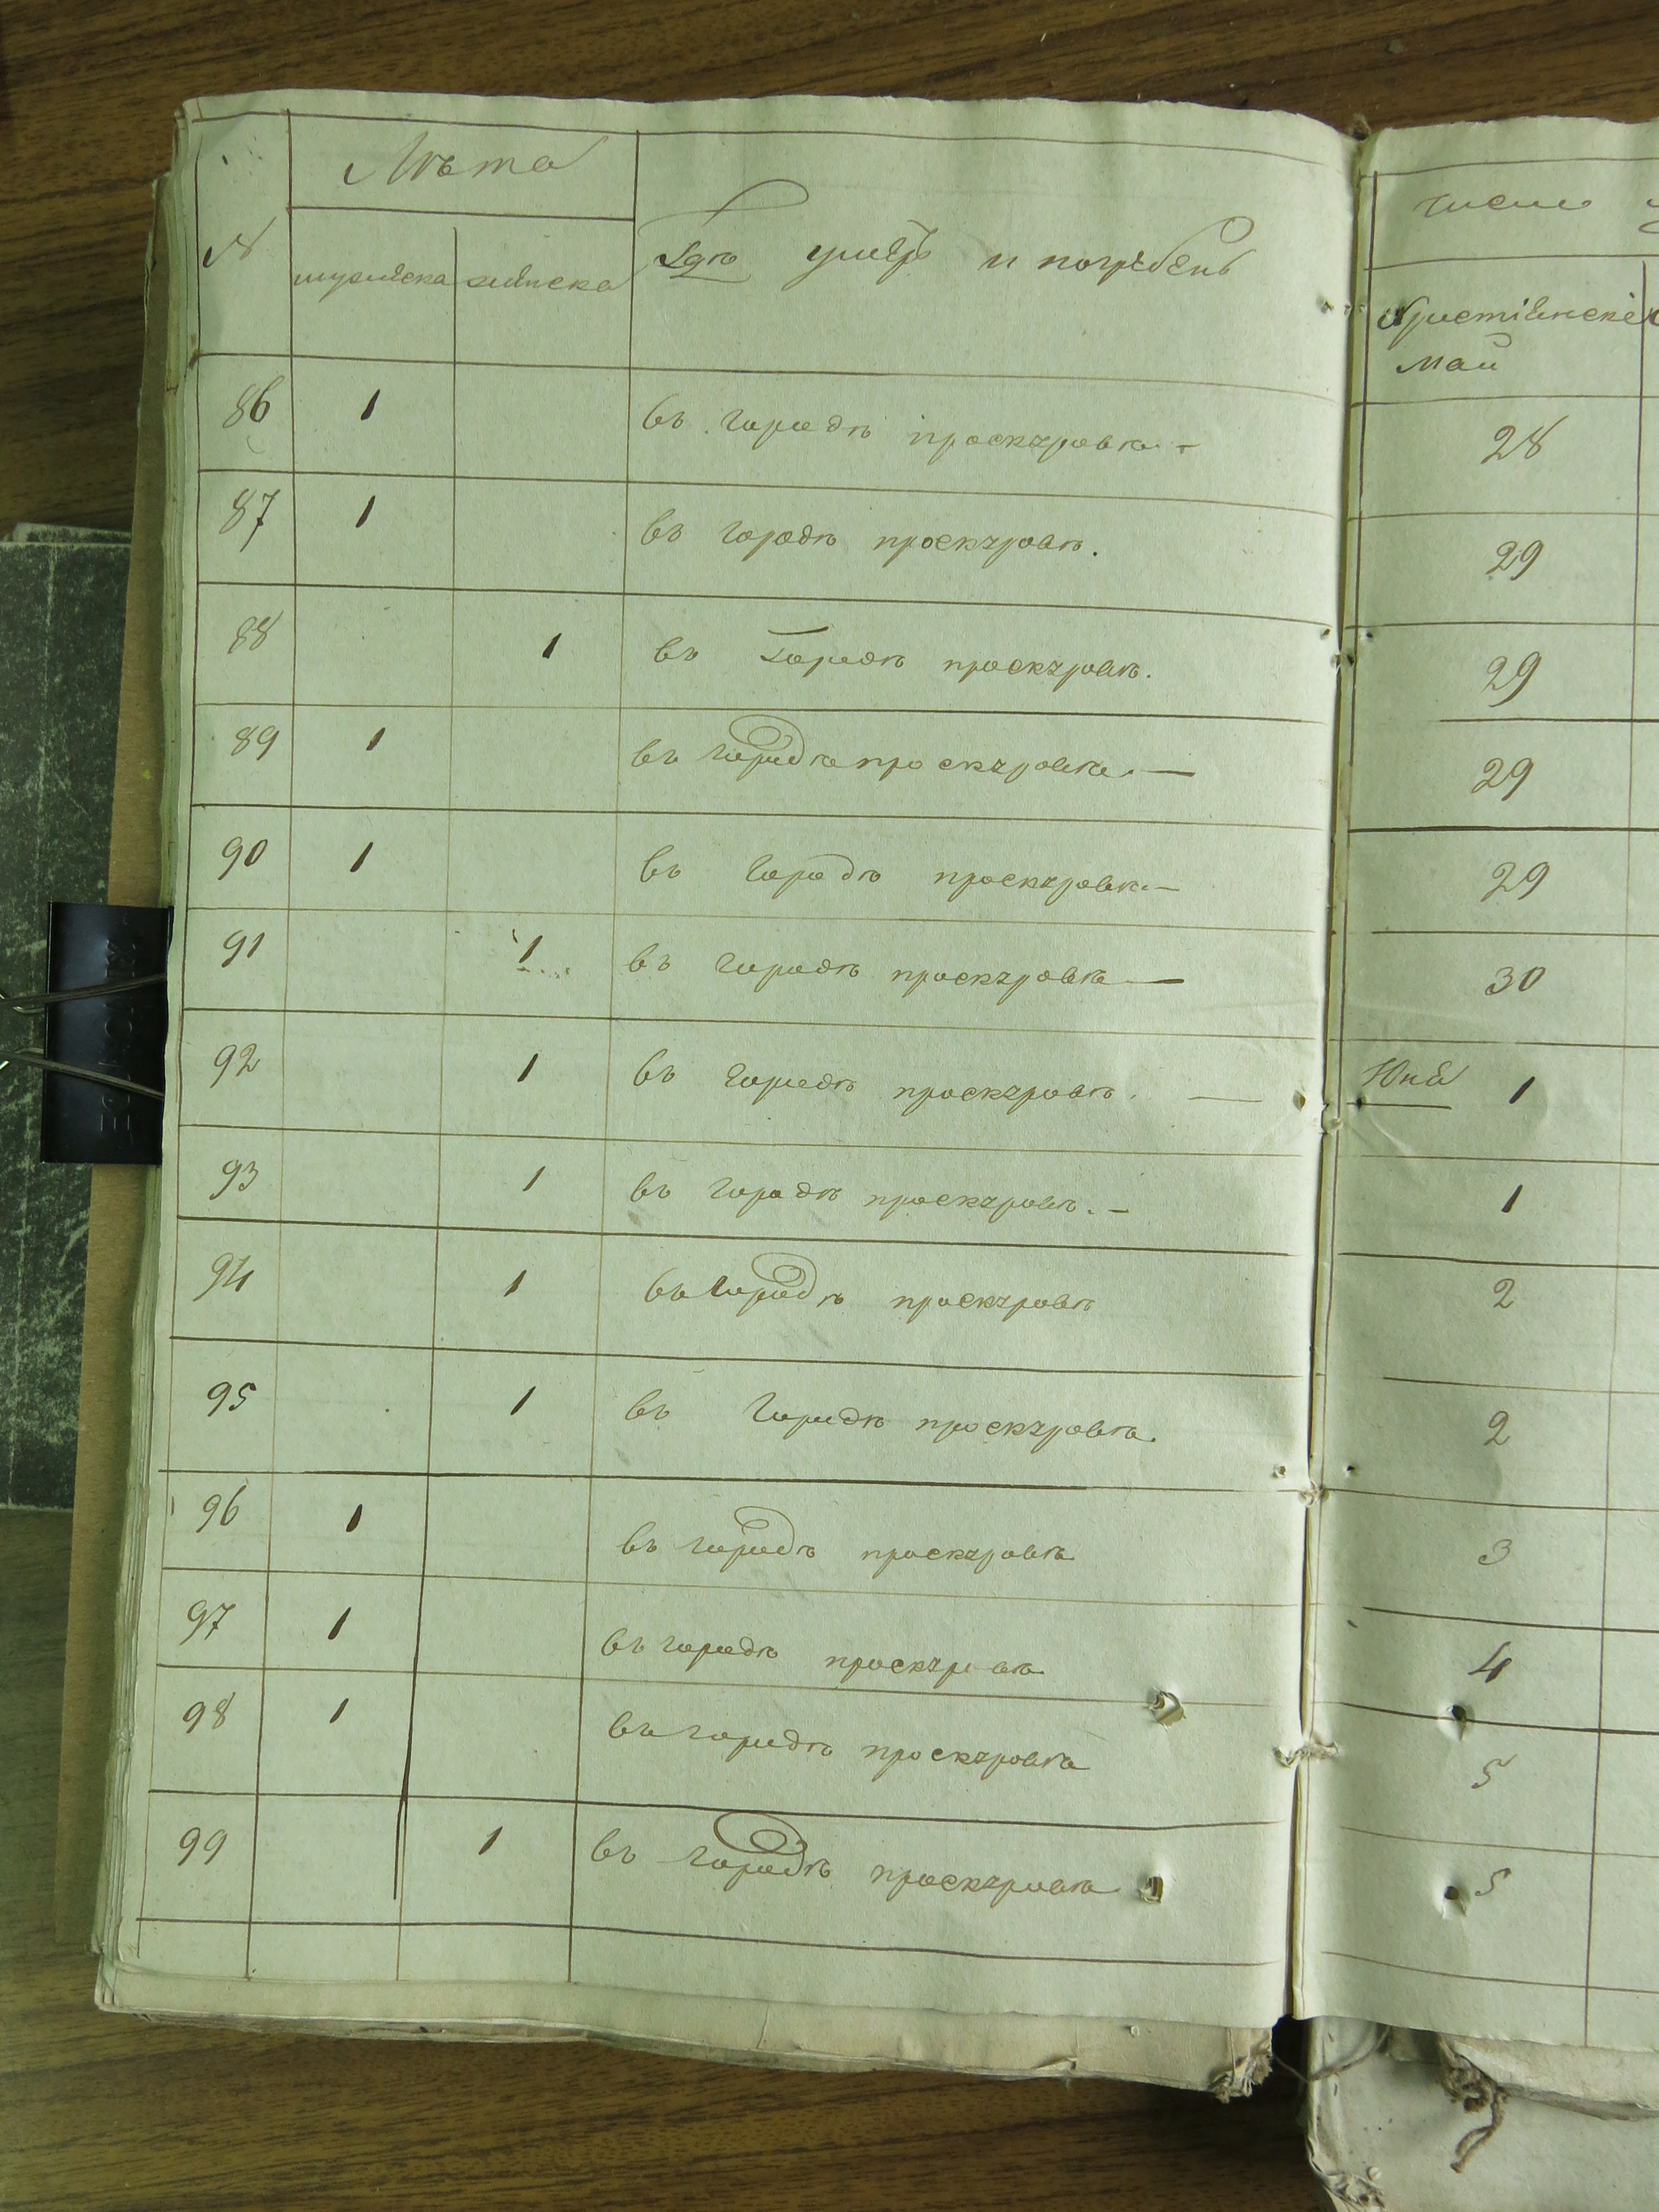 № Лѣта Гдѣ умеръ и погребенъ число
мужеска женска Христіанскій
Май
86 1 въ городѣ проскуровѣ - 28
87 1 въ городѣ проскуровѣ. 29
88 1 въ Городѣ проскуровѣ. 29
89 1 въ городѣ проскуровѣ. — 29
90 1 въ городѣ проскуровѣ — 29
91 1 въ городѣ проскуровѣ — 30
92 1 въ городѣ проскуровѣ. — Юнй 1
93 1 въ городѣ проскуровѣ. - 1
94 1 въ городѣ проскуровѣ 2
95 1 въ городѣ проскуровѣ. 2
96 1 въ городѣ проскуровѣ 3
97 1 въ городѣ проскуровѣ 4
98 1 въ городѣ проскуровѣ 5
99 1 въ городѣ проскуровѣ 5